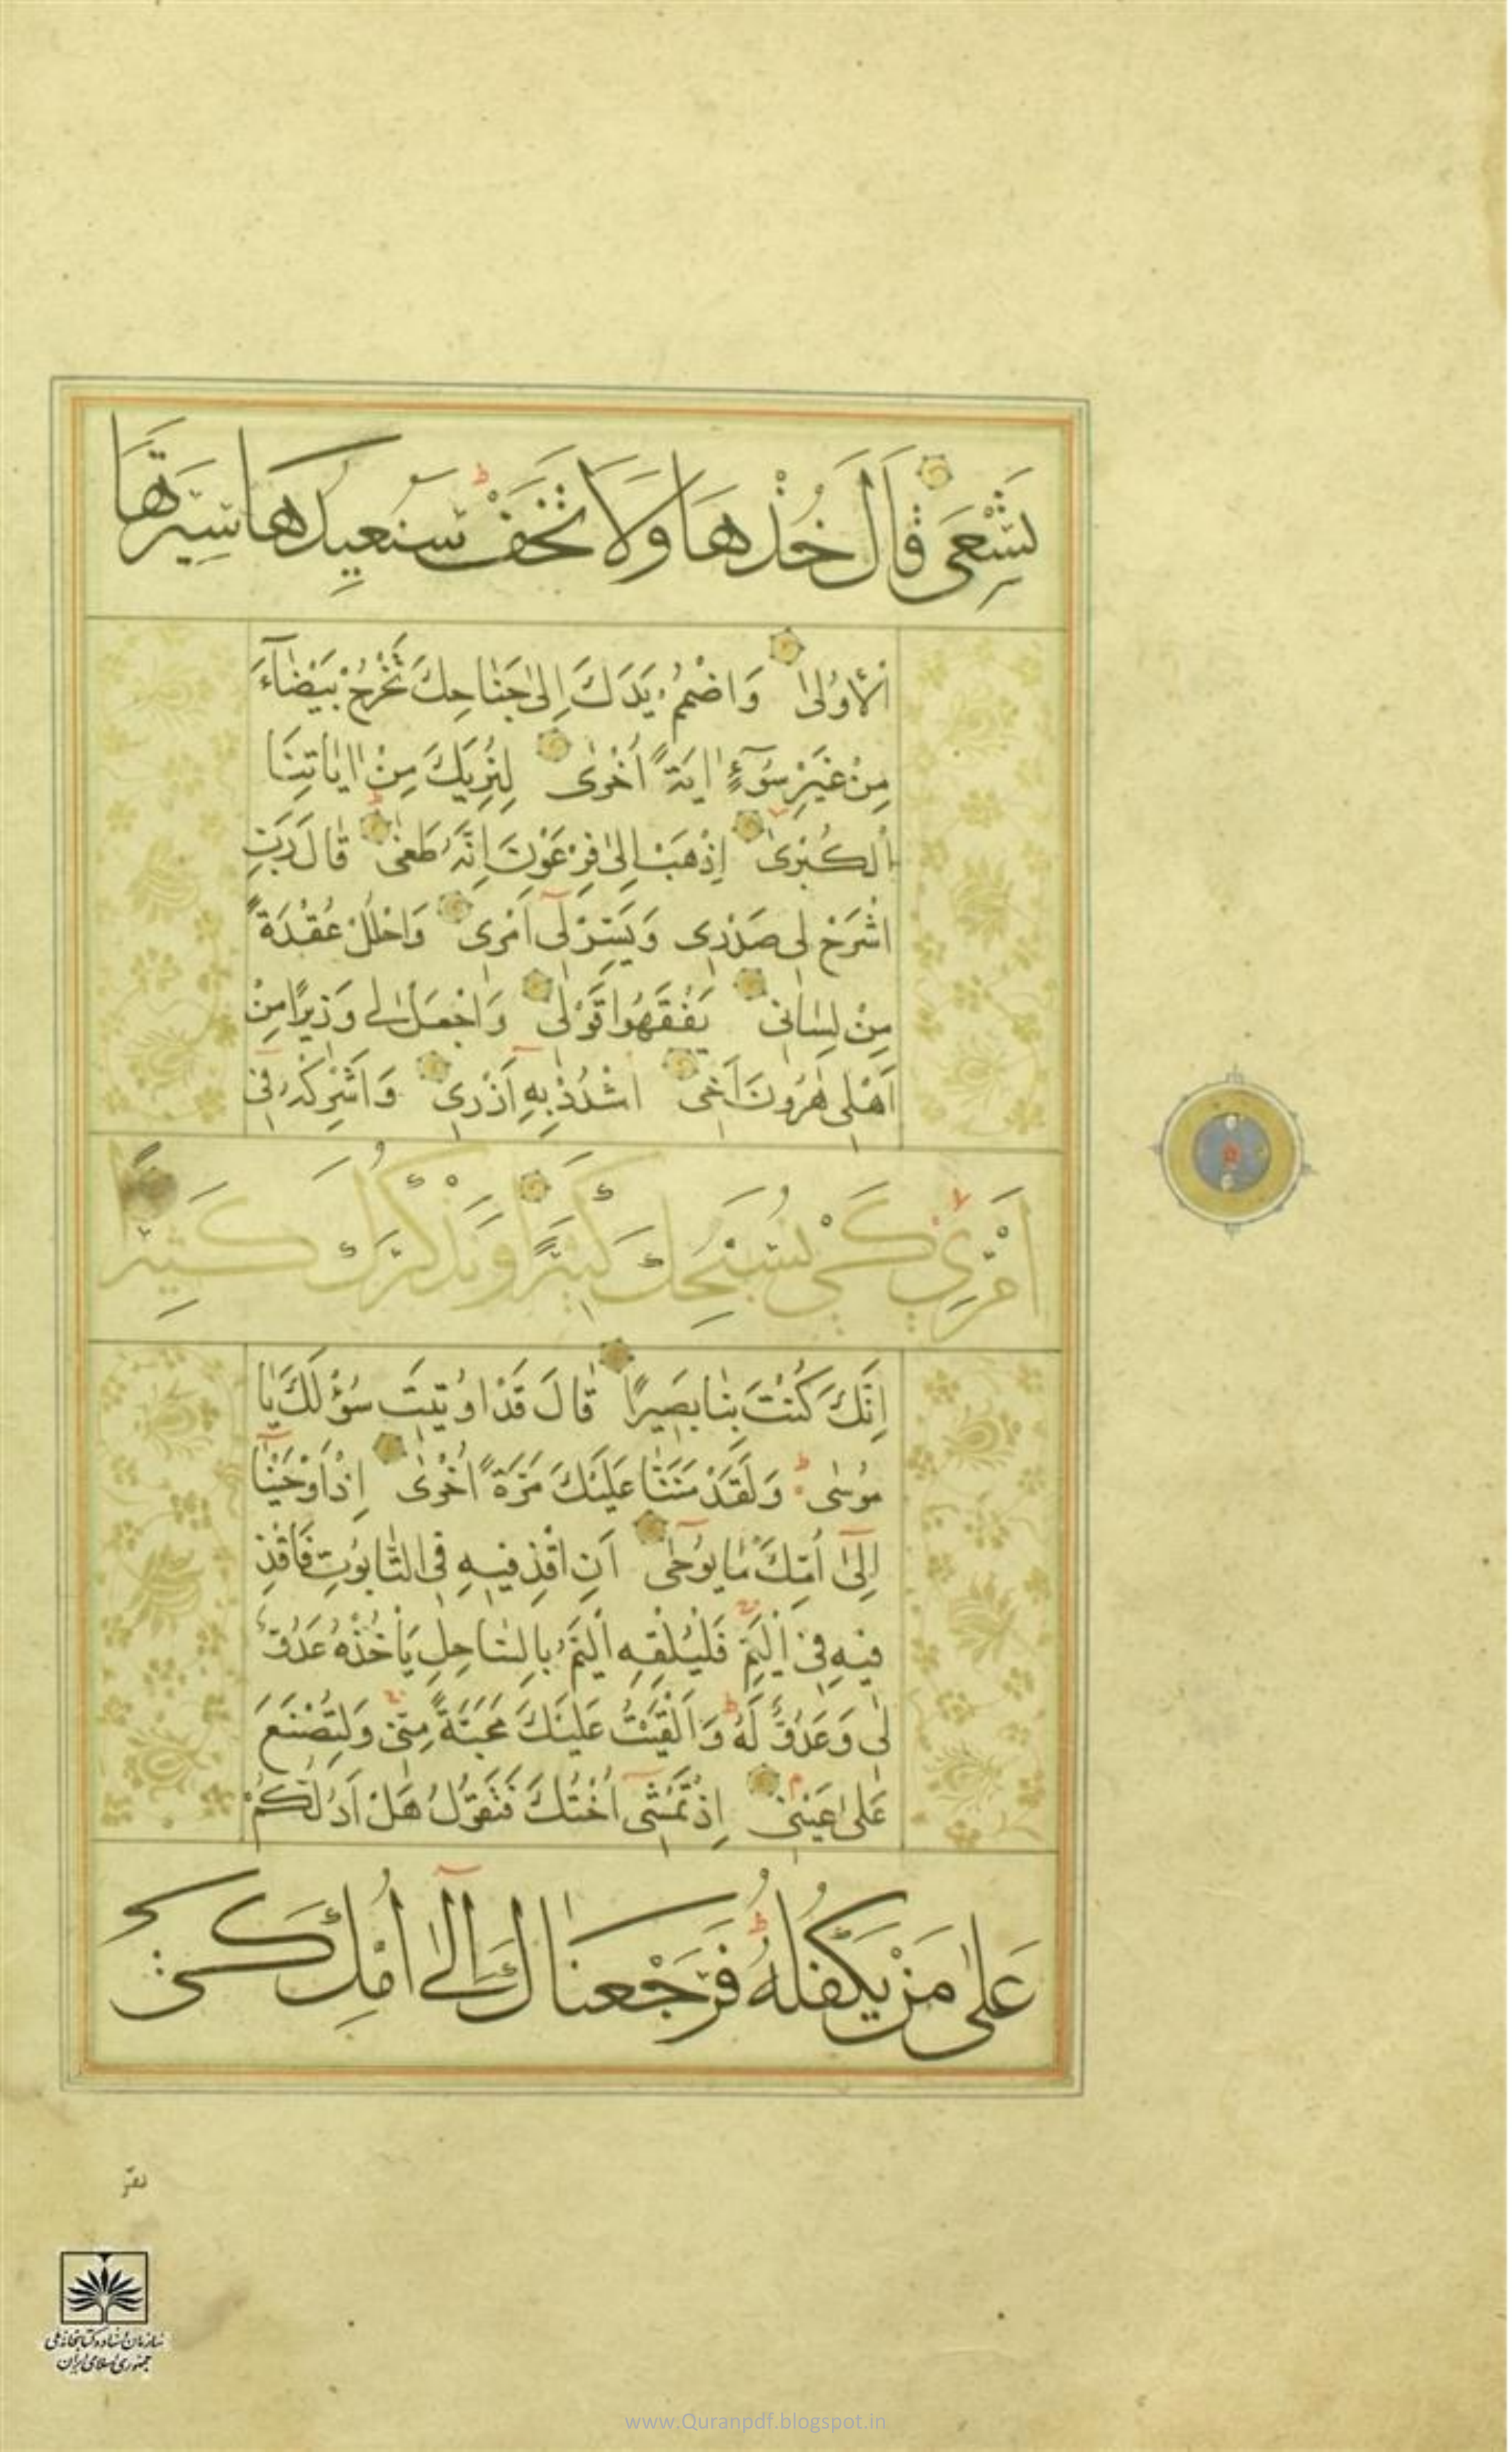 تَسْعَى قَالَ خُذْهَا وَلَا تَخَفْ سَنُعِيدُهَا سِيرَتَهَا
الْأُولَىٰ وَاضْمُمْ يَدَكَ إِلَىٰ جَنَاحِكَ تَخْرُجْ بَيْضَآءَ
مِنْ غَيْرِ سُوٓءٍ اٰيَةً أُخْرَىٰ لِنُرِيَكَ مِنْ اٰيَاتِنَا
الْكُبْرَىٰ إِذْهَبْ إِلَىٰ فِرْعَوْنَ إِنَّهُ طَغَىٰ قَالَ رَبِّ
اشْرَحْ لِي صَدْرِي وَيَسِّرْ لِيٓ أَمْرِي وَاحْلُلْ عُقْدَةً
مِنْ لِسَانِي يَفْقَهُوا قَوْلِي وَاجْعَلْ لِي وَزِيرًا مِنْ
أَهْلِي هٰرُونَ أَخِي اشْدُدْ بِهِٓ أَزْرِي وَأَشْرِكْهُ فِيٓ
أَمْرِي كَيْ نُسَبِّحَكَ كَثِيرًا وَنَذْكُرَكَ كَثِيرًا
إِنَّكَ كُنْتَ بِنَا بَصِيرًا قَالَ قَدْ أُوتِيتَ سُؤْلَكَ يَا
مُوسَىٰ وَلَقَدْ مَنَنَّا عَلَيْكَ مَرَّةً أُخْرَىٰ إِذْ أَوْحَيْنَآ
إِلَىٰٓ أُمِّكَ مَا يُوحَىٰ أَنِ اقْذِفِيهِ فِي التَّابُوتِ فَاقْذِ
فِيهِ فِي الْيَمِّ فَلْيُلْقِهِ الْيَمُّ بِالسَّاحِلِ يَأْخُذْهُ عَدُوٌّ
لِي وَعَدُوٌّ لَهُ وَأَلْقَيْتُ عَلَيْكَ مَحَبَّةً مِنِّي وَلِتُصْنَعَ
عَلَىٰ عَيْنِي إِذْ تَمْشِيٓ أُخْتُكَ فَتَقُولُ هَلْ أَدُلُّكُمْ
عَلَىٰ مَنْ يَكْفُلُهُ فَرَجَعْنَاكَ إِلَىٰٓ أُمِّكَ كَيْ
تقرّ
سازمان اسناد و کتابخانه ملی
جمهوری اسلامی ایران
www.Quranpdf.blogspot.in